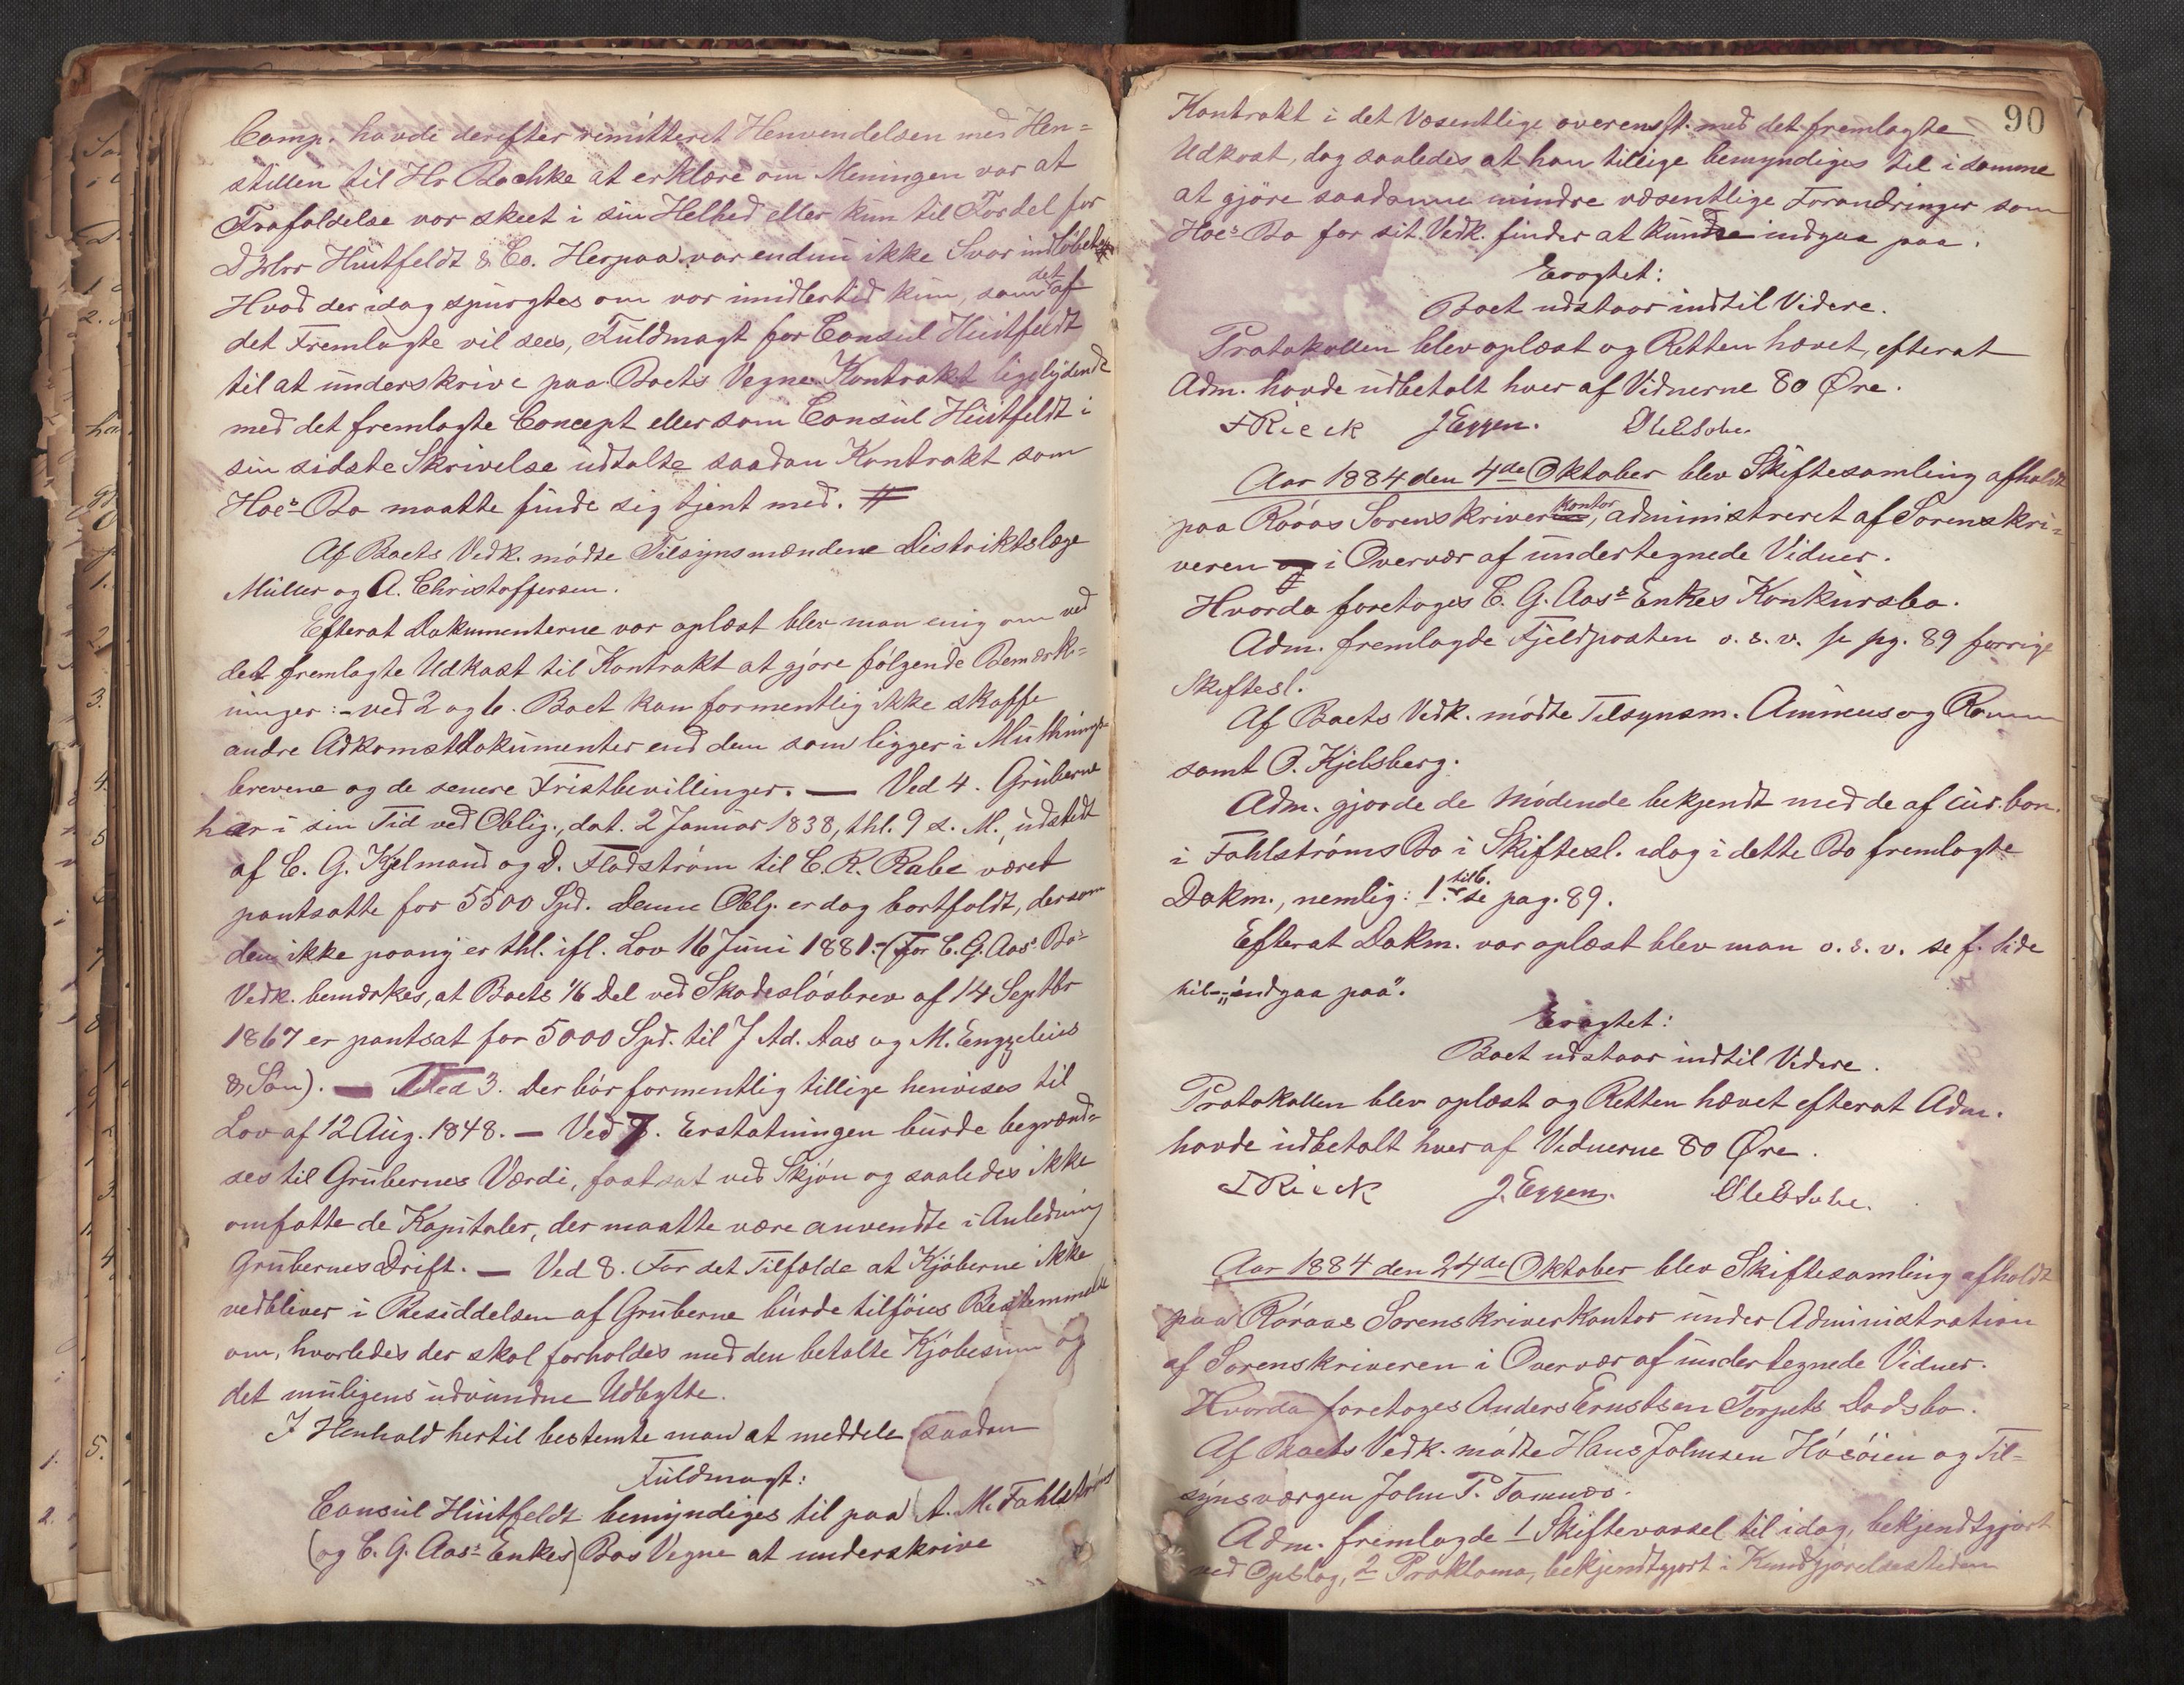 Comp. havde derefter remitteret Henvendelsen med Hen=
stillen til Hr Bachke at erklære om Meningen var at
Frafaldelse var skeet i sin Helhed eller kun til Fordel for
DHrr Huitfeldt & Co. Herpaa var endnu ikke Svar indløbet.
Hvad der idag spurgtes om var imidlertid kun, som det af
det Fremlagte vil sees, Fuldmagt for Consul Huitfeldt
til at underskrive paa Boets Vegne Kontrakt ligelydende
med det fremlagte Concept eller som Consul Huitfeldt i
sin sidste Skrivelse udtalte saadan Kontrakt som
Hoe's Bo maatte finde sig tjent med. #
Af Boets Vedk. mødte Tilsynsmændene Distriktslæge
Müller og A. Christoffersen.
Efterat Dokumenterne var oplæst blev man enig om ved
det fremlagte Udkast til Kontrakt at gjøre følgende Bemærk=
ninger: - ved 2 og 6. Boet kan formentlig ikke skaffe
andre Adkomstdokumenter end dem som ligger i Muthnings=
brevene og de senere Fristbevillinger. — Ved 4. Gruberne
har i sin Tid ved Oblig., dat. 2 Januar 1838, thl. 9 s. M., udstedt
af C. G. Kjelmand og D. Flodstrøm til C. R. Rabe været
pantsatte for 5500 Spd. Denne Oblg. er dog bortfaldt, dersom
den ikke paany er thl. ifl. Lov 16 Juni 1881. - (For C. G. Aas's Bo's
Vedk. bemærkes, at Boets 1/6 Del ved Skadesløsbrev af 14 Septbr
1867 er pantsat for 5000 Spd. til J Ad. Aas og M. Engzelius
& Søn). — Ved 3. Der bør formentlig tillige henvises til
Lov af 12 Aug. 1848. — Ved 7. Erstatningen burde begrænd=
ses til Grubernes Værdi, fastsat ved Skjøn og saaledes ikke
omfatte de Kapitaler, der maatte være anvendte i Anledning
Grubernes Drift. — Ved 8. For det Tilfælde at Kjøberne ikke
vedbliver i Besiddelsen af Gruberne burde tilføies Bestemmelse
om, hvorledes der skal forholdes med den betalte Kjøbesum og
det muligens udvundne Udbytte.
I Henhold hertil bestemte man at meddele saadan
Fuldmagt:
Consul Huitfeldt bemyndiges til paa A. M. Fahlstrøms
(og C. G. Aas's Enkes) Bos Vegne at underskrive
90
Kontrakt i det Væsentlige overensst. med det fremlagte
Udkast, dog saaledes at han tillige bemyndiges til i samme
at gjøre saadanne mindre væsentlige Forandringer som
Hoe's Bo for sit Vedk. finder at kunne indgaa paa.
Eragtet:
Boet udstaar indtil Videre.
Protokollen blev oplæst og Retten hævet, efterat
Adm. havde udbetalt hver af Vidnerne 80 Øre.
FRieck J Eggen.
Aar 1884 den 4de Oktober blev Skiftesamling afholdt
paa Røraas Sorenskriverkontor, administreret af Sorenskri=
veren og i Overvær af undertegnede Vidner.
Hvorda foretoges C. G. Aas's Enkes Konkursbo.
Adm. fremlagde Fjeldposten o. s. v. se pg. 89 forrige
Skiftesl.
Af Boets Vedk. mødte Tilsynsm. Aimeus og Ramm
samt O. Kjelsberg.
Adm. gjorde de Mødende bekjendt med de af cur. bon.
i Fahlstrøms Bo i Skiftesl. idag i dette Bo fremlagte
Dokm., nemlig: 1 til 6. se pag. 89.
Efterat Dokm. var oplæst blev man o. s. v. se f. Side
til - „indgaa paa".
Eragtet:
Boet udstaar indtil Videre.
Protokollen blev oplæst og Retten hævet efterat Adm.
havde udbetalt hver af Vidnerne 80 Øre.
FRieck J. Eggen.
Aar 1884 den 24de Oktober blev Skiftesamling afholdt
paa Røraas Sorenskriverkontor under Administration
af Sorenskriveren i Overvær af undertegnede Vidner.
Hvorda foretoges Anders Ernstsen Torpets Dødsbo.
Af Boets Vedk. mødte Hans Johnsen Høsøien og Til=
synsværgen John P. Tamnæs.
Adm. fremlagde 1 Skiftevarsel til idag, bekjendtgjort
ved Opslag, 2 Proklama, bekjendtgjort i Kundgjørelsestidende